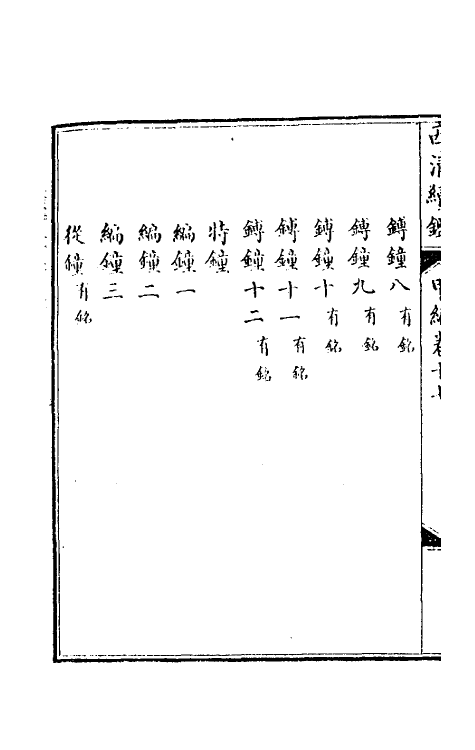 西清續鑑 甲編卷十七
鎛鐘八有銘
鎛鐘九有銘
鎛鐘十有銘
鎛鐘十一有銘
鎛鐘十二有銘
特鐘
編鐘一
編鐘二
編鐘三
從鐘有銘